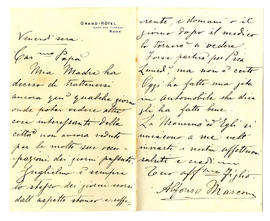 GRAND-HÔTEL
ROME
Venerdì sera
Car.mo Papà
Mia Madre ha
deciso di trattenersi
ancora qualche giorno
onde poter vedere altre
cose interessanti della
città non ancora vedute
per le molte sue occu-
pazioni dei giorni passati.
Guglielmo è sempre
lo stesso dei giorni scorsi
dall'aspetto stanco e soffe-
rente, e domani o il
giorno dopo il medico
lo tornerà a vedere.
Forse partirà per Pisa
Lunedì ma non è certo
Oggi ha fatto una gita
in automobile che dice
gli ha fatto bene.
La Mamma ed Egli si
uniscono a me nell'
inviarti i nostri affettuosi
saluti e credimi
tuo aff.mo figlio
Alfonso Marconi